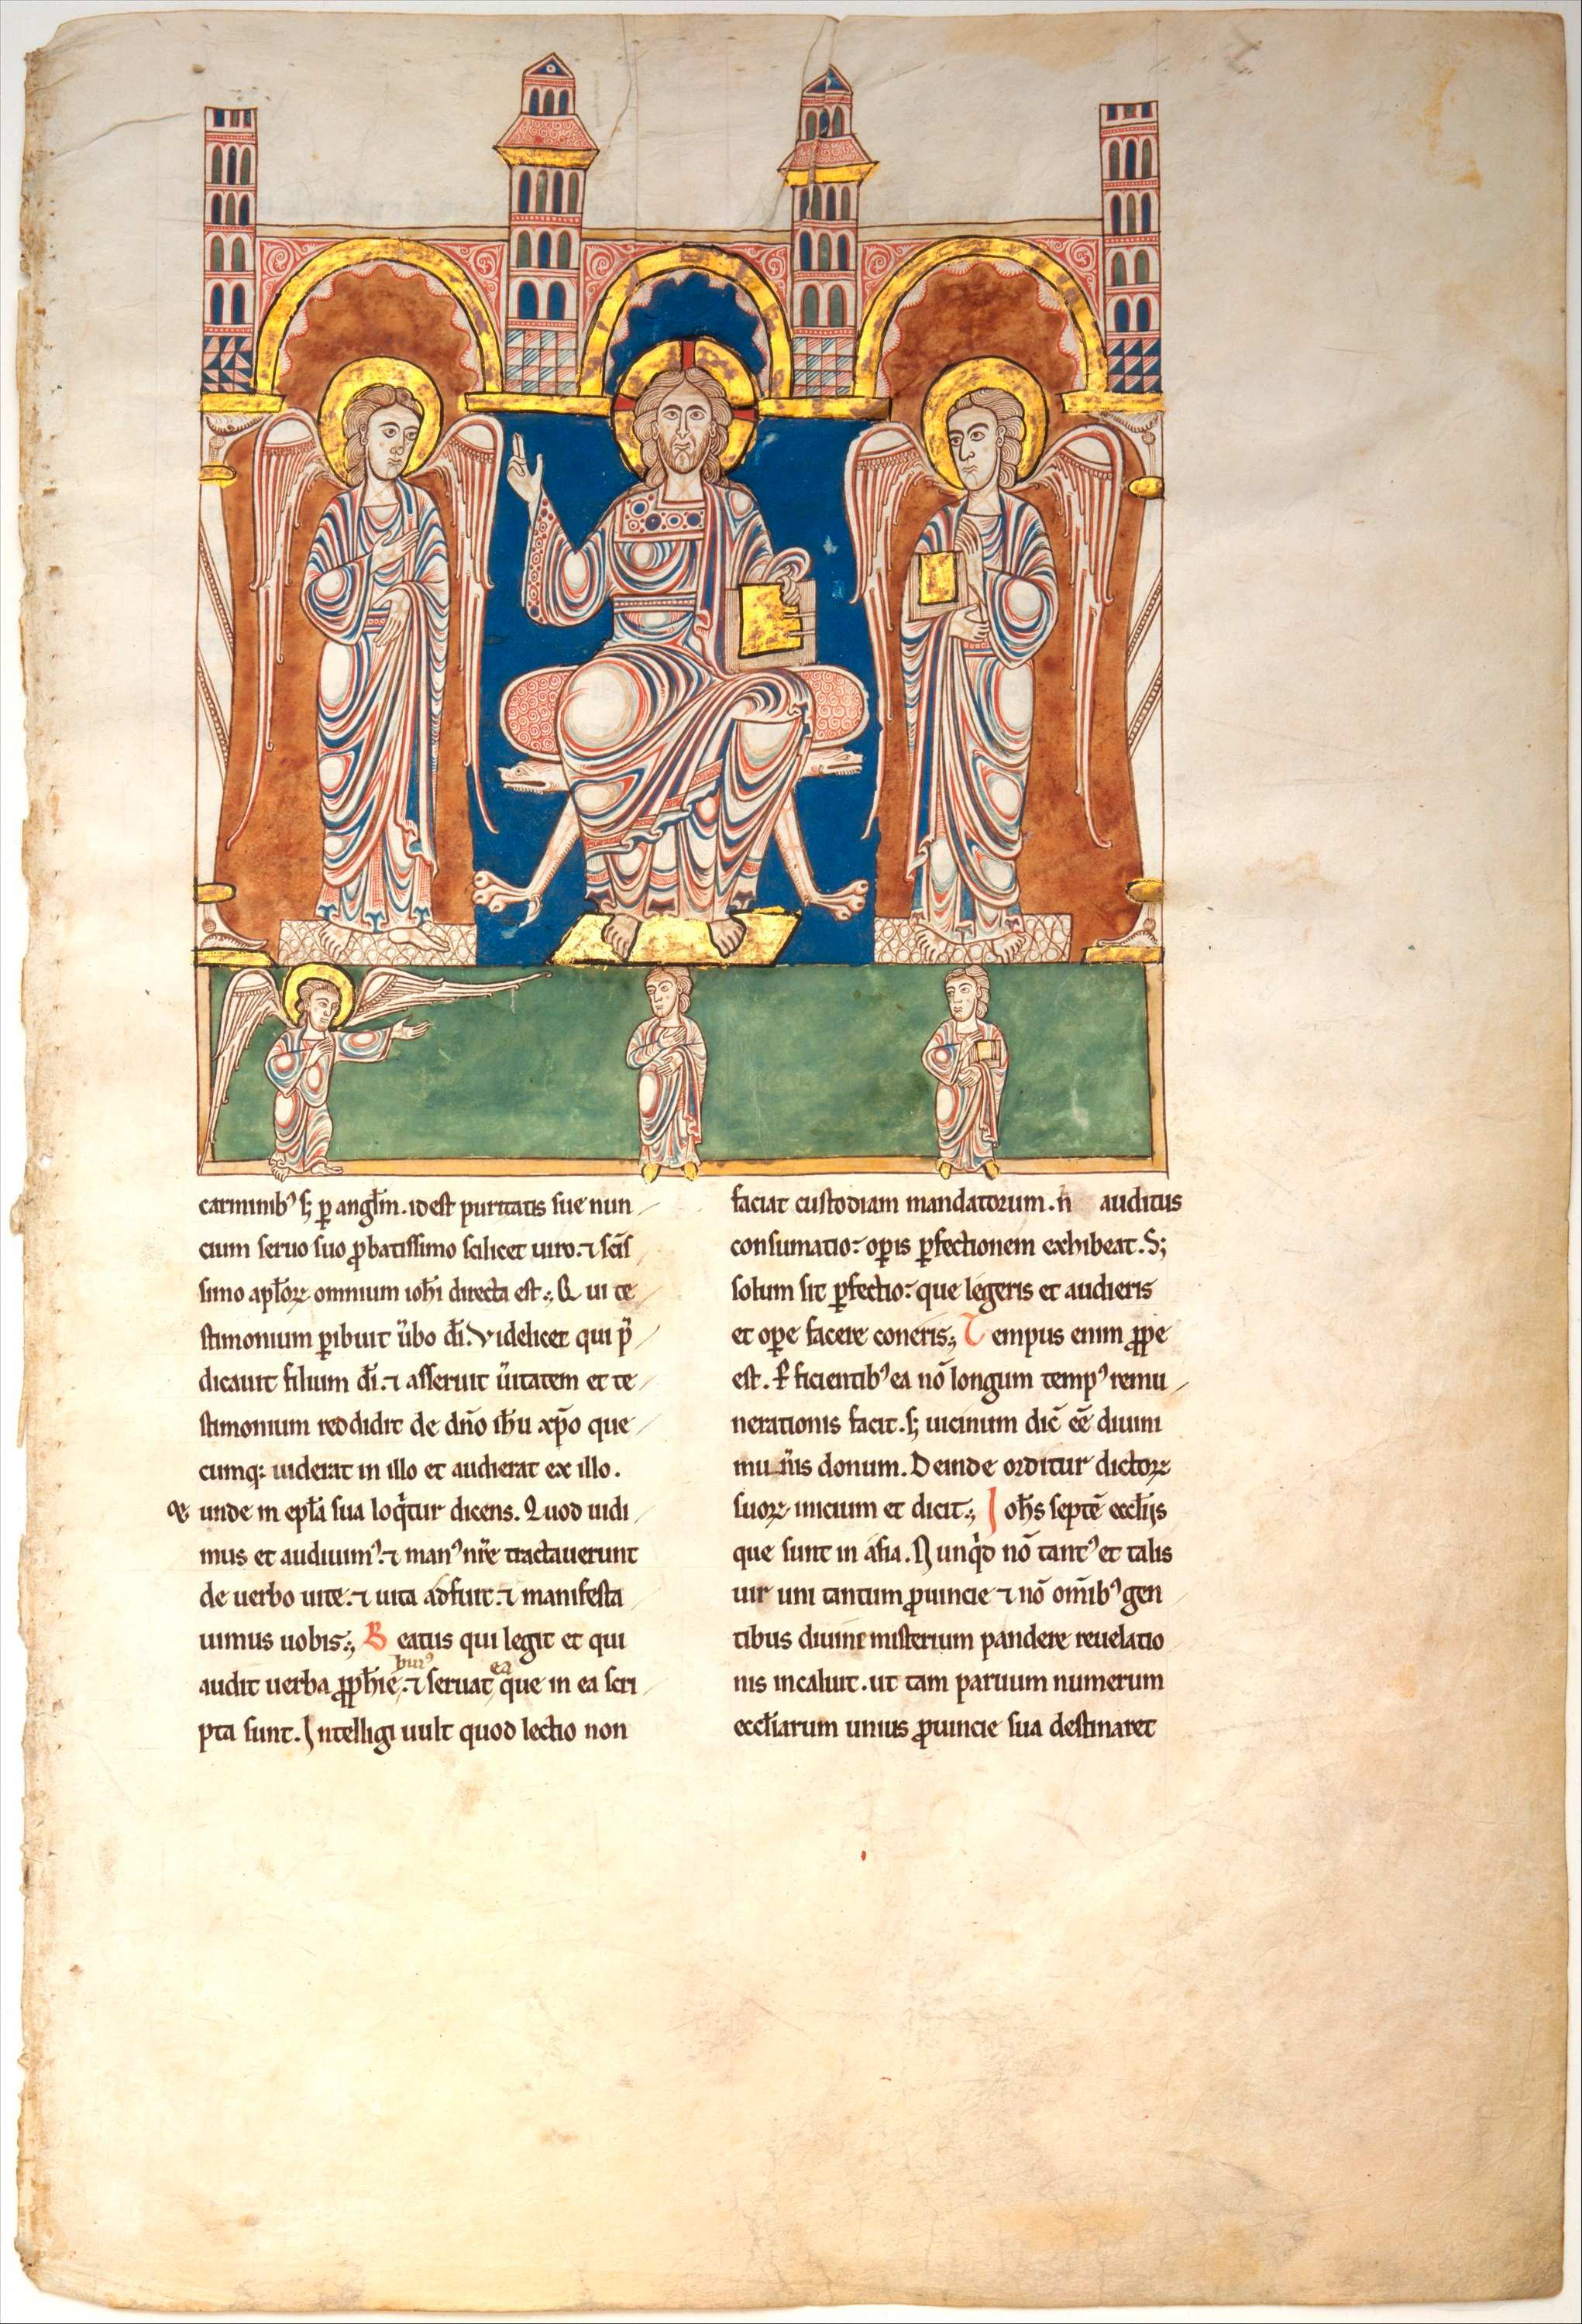 carminibꝰ ſꝫ ꝑ angl̄m. idest puritatis sue nun
cium seruo suo ꝓbatissimo scilicet uiro. ⁊ scīs
simo apl̄oꝝ omnium ioh̄i directa est. Qui te
stimonium ꝑibuit u̾bo dī. Videlicet qui p̾
dicauit filium dī. ⁊ asseruit u̾itatem et te
stimonium reddidit de dn̄o ih̄u xp̄o que
cumqꝫ uiderat in illo et audierat ex illo.
unde in epl̄a sua loq̇tur dicens. Quod uidi
mus et audiuimꝰ. ⁊ manꝰ nr̄e tractauerunt
de uerbo uite. ⁊ uita adfuit. ⁊ manifesta
uimus uobis. Beatus qui legit et qui
huiꝰ ea
audit uerba ꝓph̄ie. ⁊ seruat que in ea scri
pta sunt. Intelligi uult quod lectio non
faciat custodiam mandatorum. n̄ auditus
consumatio: oꝑis ꝑfectionem exhibeat. Sꝫ
solum sit ꝑfectio: que legeris et audieris
et oꝑe facere coneris. Tempus enim ꝓpe
est. ficientibꝰ ea nō longum tempꝰ remu
nerationis facit. ſꝫ uicinum dic̄ eē diuini
mun̾is donum. Deinde orditur dictoꝝ
suoꝝ inicium et dicit. Ioh̄s septē eccl̄ijs
que sunt in asia. Nunq̇d nō tantꝰ et talis
uir uni tantum ꝓuincie ⁊ nō om̄ibꝰ gen
tibus diuini misterium pandere reuelatio
nis incaluit. ut tam paruum numerum
eccl̄iarum unius ꝓuincie sua destinaret